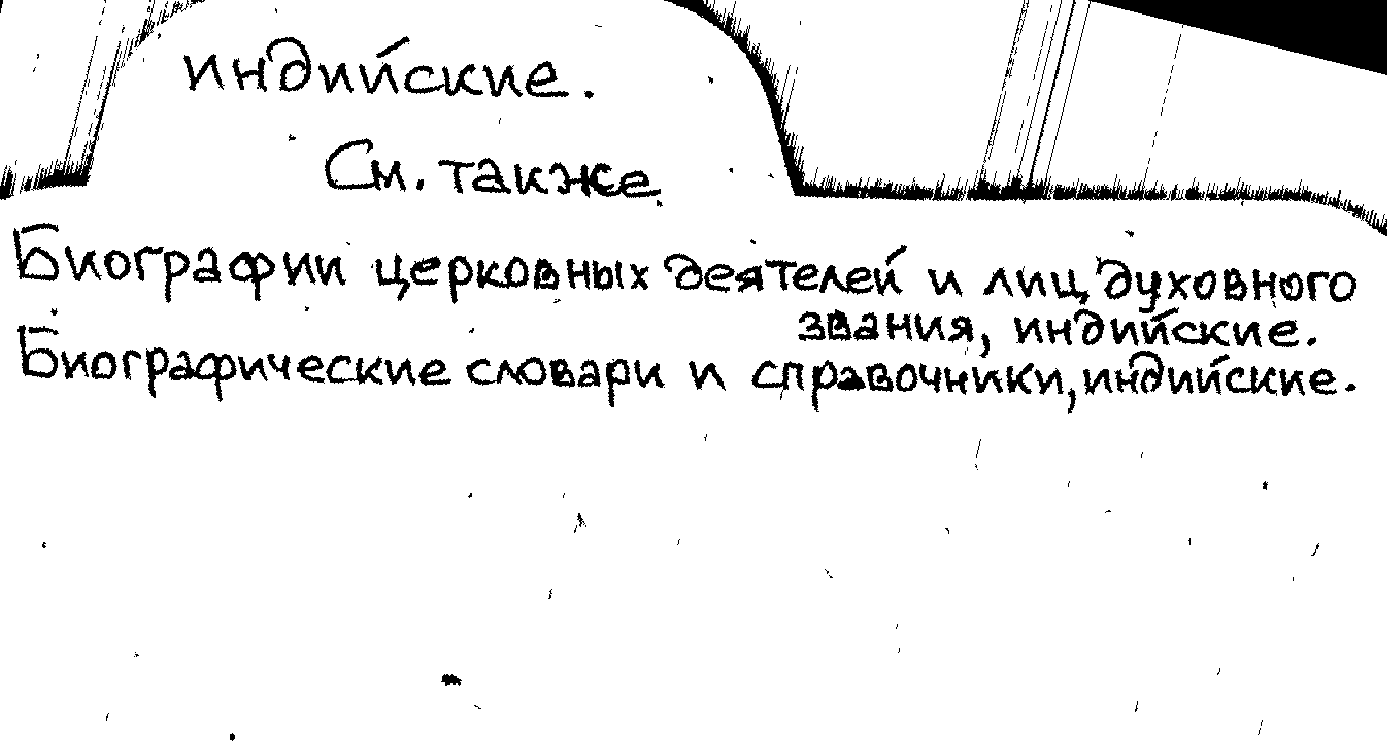 индийские.
См. также
Биографии церковных деятелей и лиц духовного
звания, индийские.
Биографические словари и справочники, индийские.